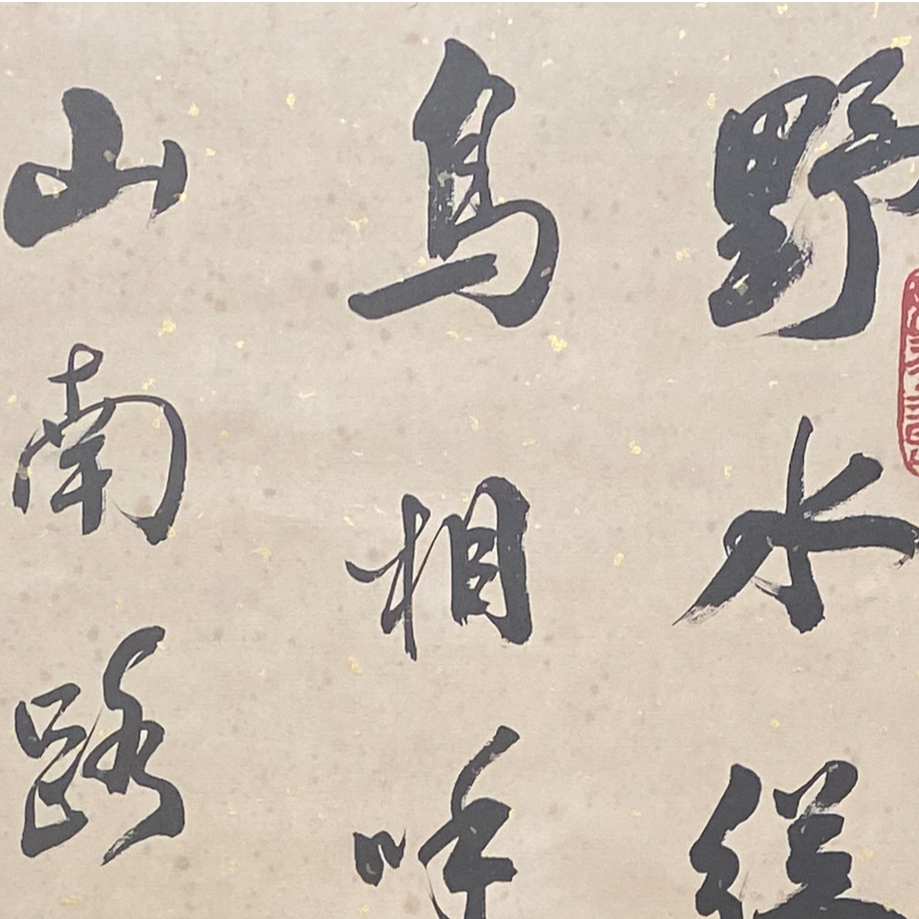 野水縱
鳥相呼
山南路